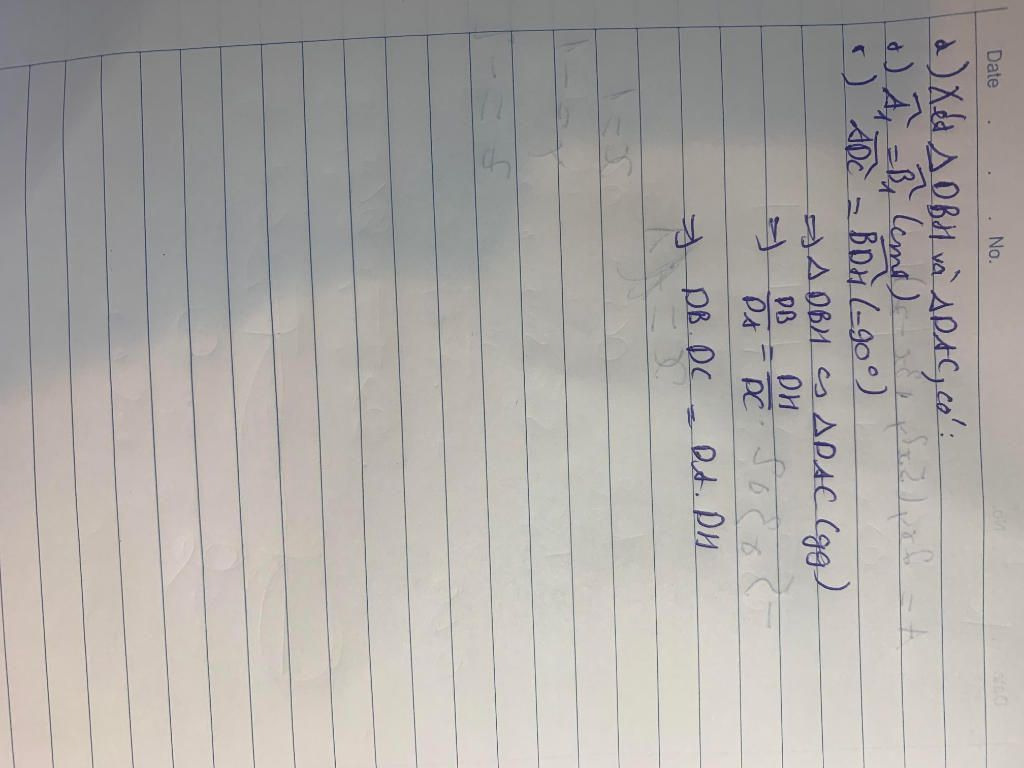 Date . . . No.
d) Xét Δ DBH và Δ DAC, có:
+) Â₁ = B̂₁ (cmt)
+) ADC = BDH (=90°)
=) Δ DBH ∽ Δ DAC (gg)
=) DB/DA = DH/DC
=) DB. DC = DA. DH